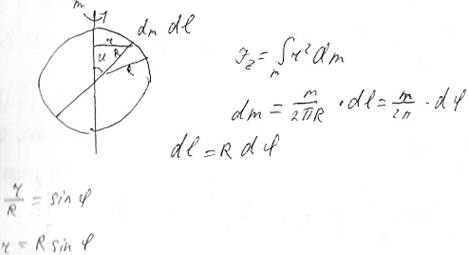 m
r dm dl
R
φ R
J_z = ∫_m r² dm
dm = m/2πR · dl = m/2π · dφ
dl = R dφ
r/R = sin φ
r = R sin φ